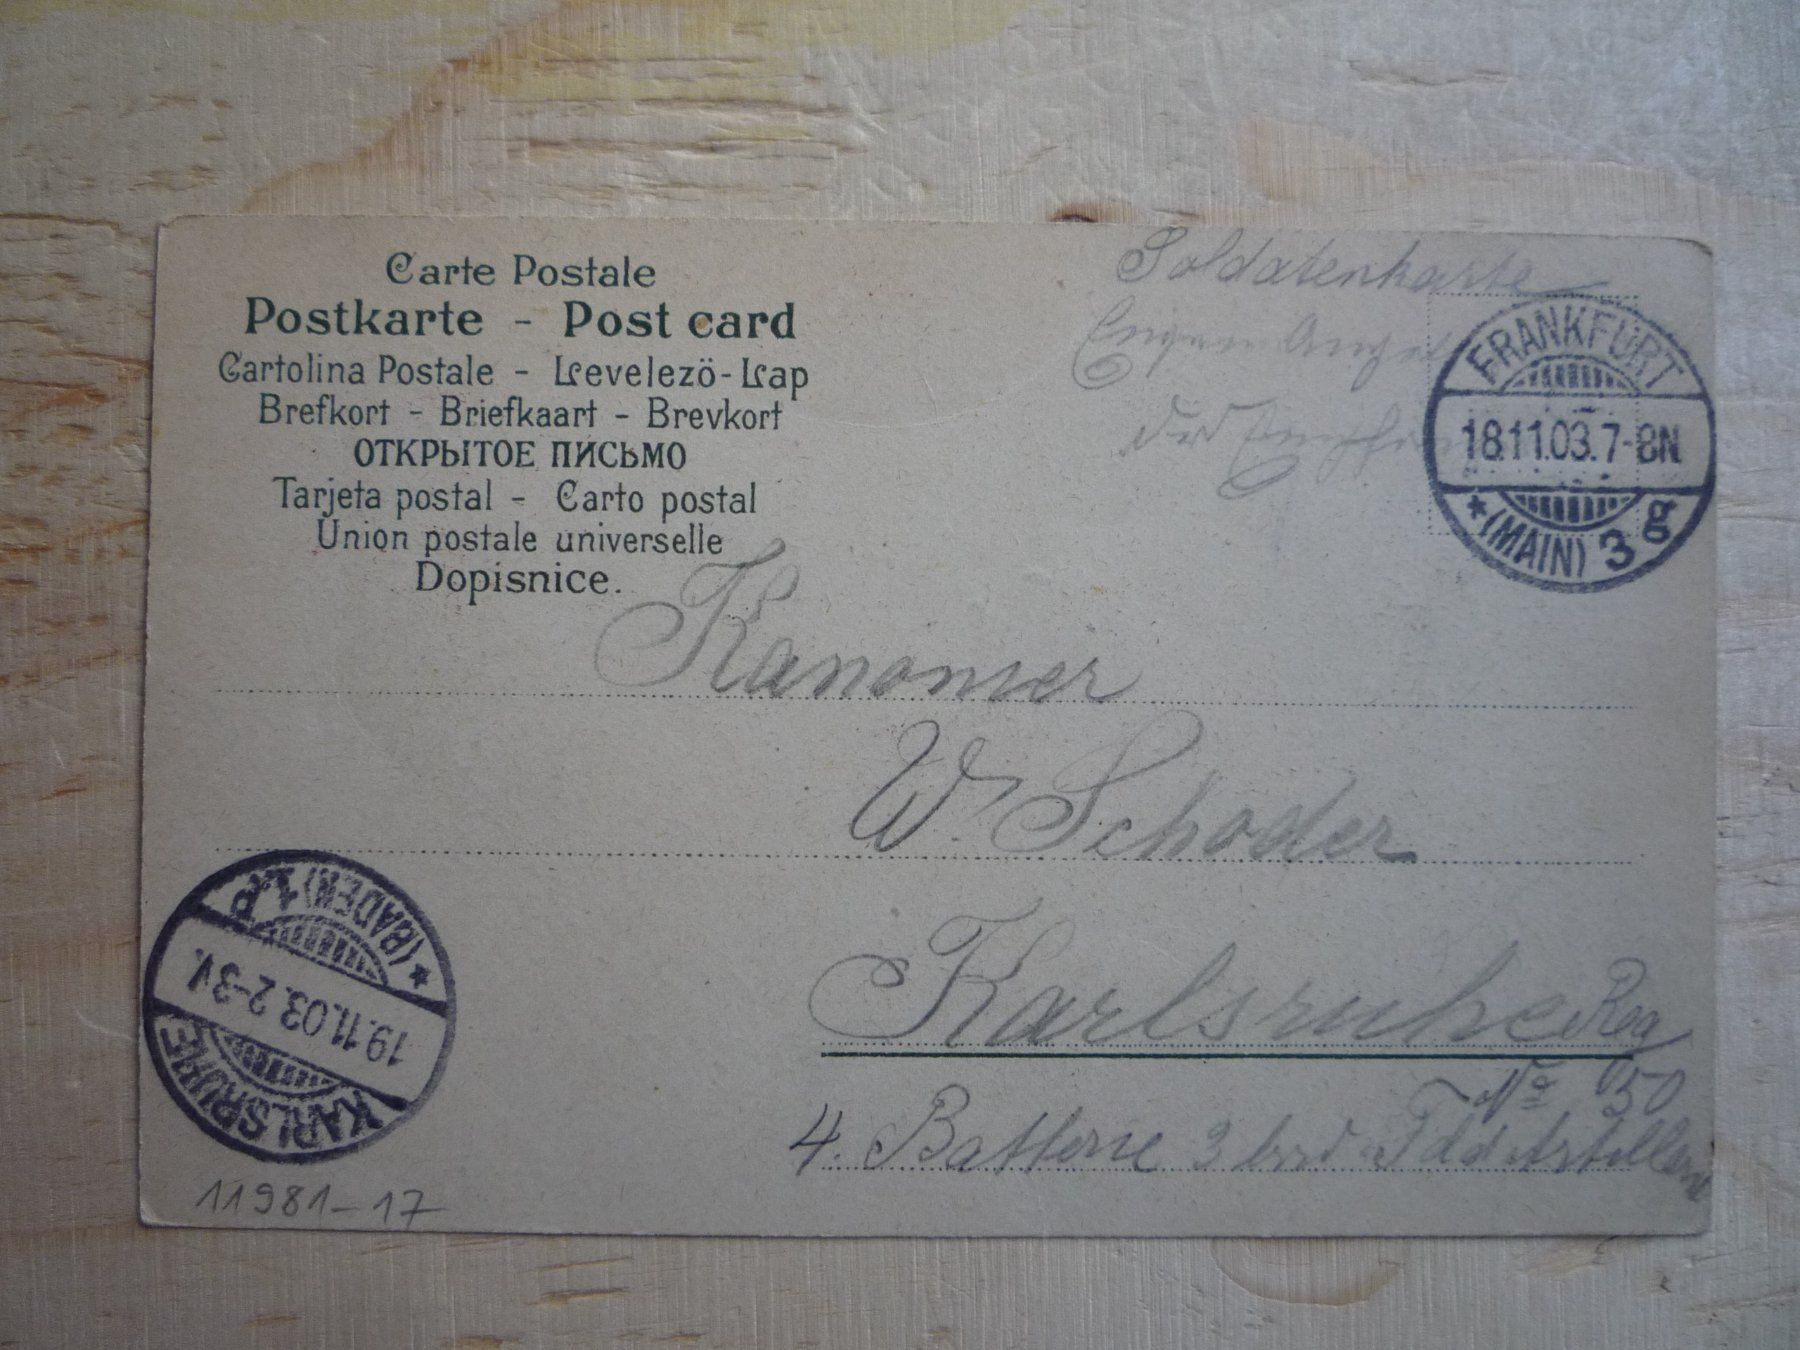 Carte Postale
Postkarte - Post card
Cartolina Postale - Levelezö-Lap
Brefkort - Briefkaart - Brevkort
ОТКРЫТОЕ ПИСЬМО
Tarjeta postal - Carto postal
Union postale universelle
Dopisnice.
Soldatenkarte
Eigene Ang
des Empfän
FRANKFURT
18.11.03.7-8N
* (MAIN) 3 g
Kanonier
W. Schoder
Karlsruhe Reg
No 50
4. Batterie 3 bad Feld Artillerie
KARLSRUHE
19.11.03.2-3V.
* (BADEN) 1.
11981-17